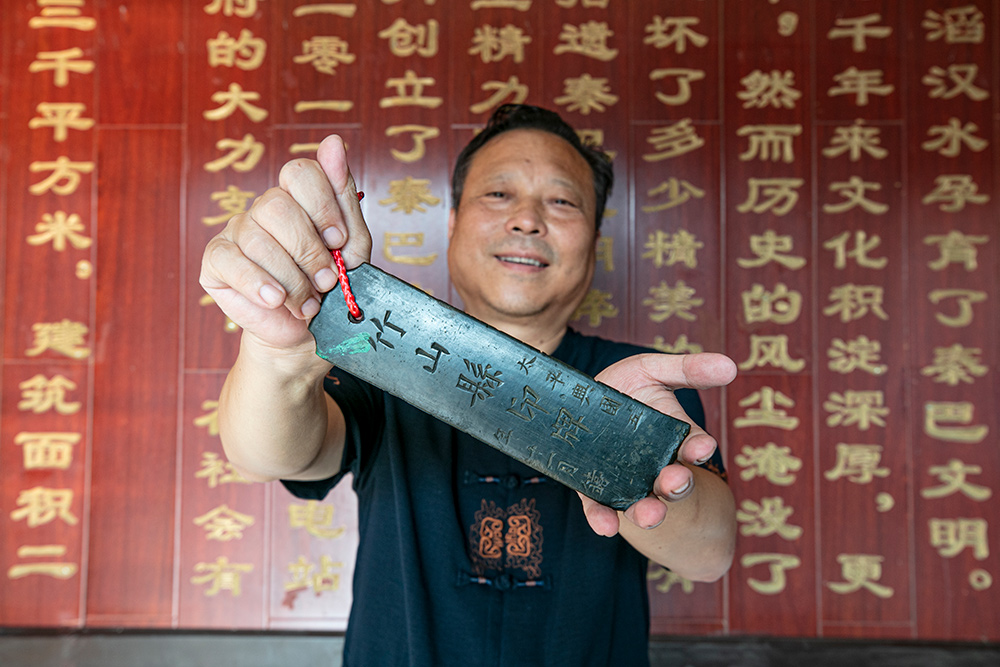 滔汉水孕育了秦巴文明。
千年来文化积淀深厚,更
,然而历史的风尘淹没了
坏了多少精美
拾遗秦
精力
创立了秦巴
零一
电站
府的大力
社会有
三千平方米,建筑面积二
太平興國
竹山縣 牌
十一月